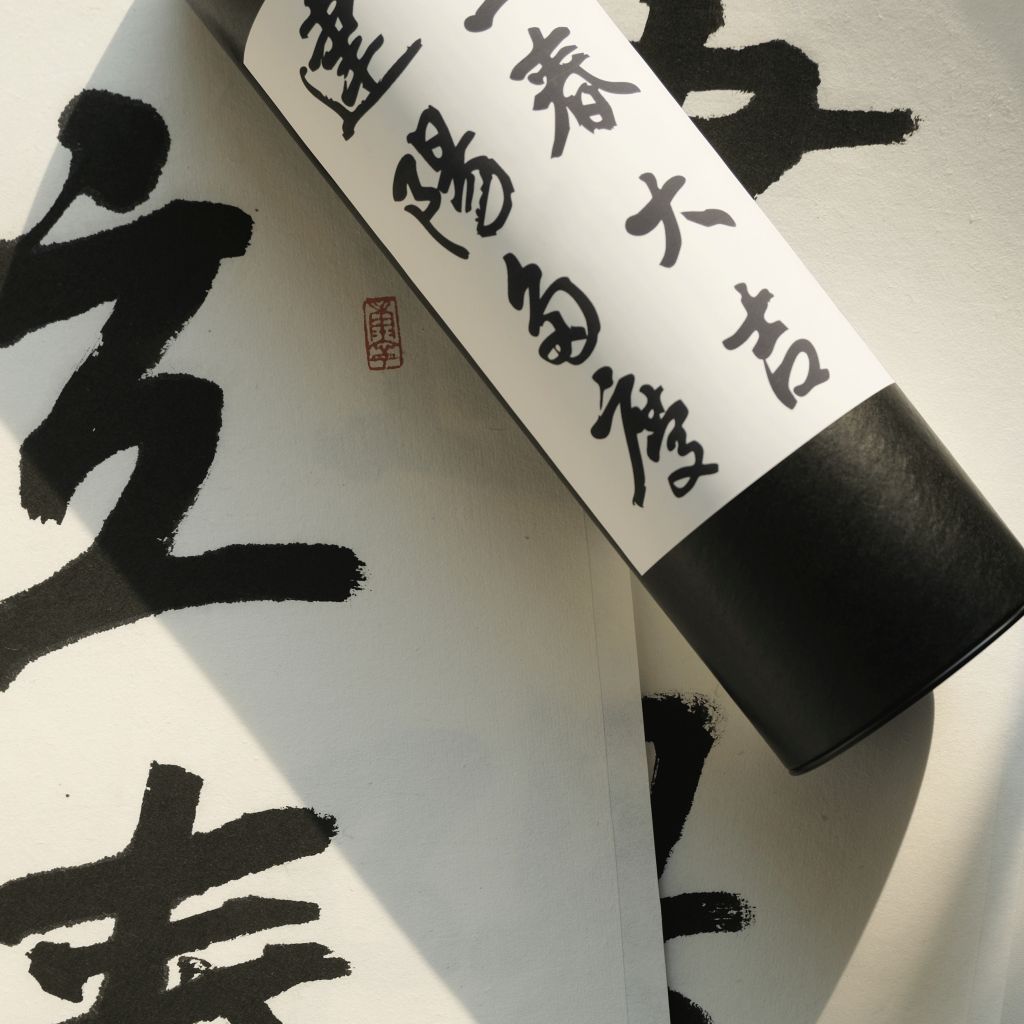 春大吉
建陽多慶
立春